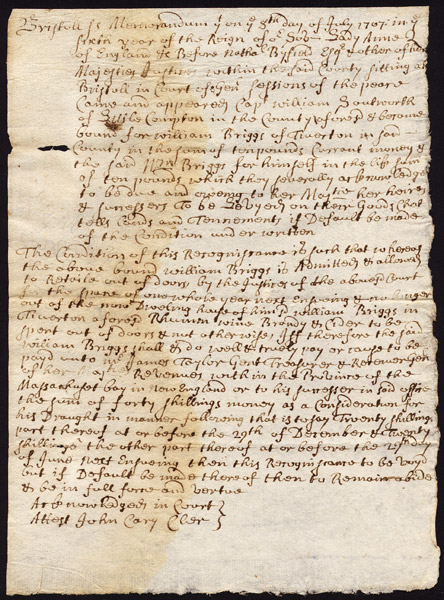 Bristoll ss Memorandum yt on ye 8th day of July 1707 in ye
sixth year of the Reign of or Sovr Lady Anne Q
of England &c Before Nathll Byfield Esqr & other of her
Majesties Justices within the said County sitting at
Bristoll in Court of Genll sessions of the peace
Came and appeared Capt William Southworth
of Little Compton in the County aforesd & became
bound for William Briggs of Tiverton in said
County in the sum of ten pounds Currant money &
the said Wm Briggs for himself in the like sum
of ten pounds which they severally acknowledge
to be due and oweing to her Majtie her heires
& successers To be Levyed on their Goods Chat
tells Lands and Tennements if Default be made
of the Condition undr written
The Condition of this Recognisance is such that whereas
the above bound William Briggs is Admitted & allowed
to Retaile out of doors by the Justices of the abovesd Court
for the space of one whole year next Ensuing & no longer
out of the now Dwelling house of him sd William Briggs in
Tiverton aforesd Rhum wine Brandy & Cider to be
spent out of doors & not otherwise If therefore the said
William Briggs shall & do well & truely pay or cause to be
paid unto James Taylor Gent Treasurer & Receiver Gen
of her Revenues within the Province of the
Massachuset bay in New England or to his successor in said office
the sum of forty shillings money as a Consideration for
his Draught in manner following that is to say Twenty shillings
part thereof at or before the 29th of December & Twenty
shillings the other part thereof at or before the day
of June Next Ensueing then this Recognisance to be voyd
but if Default be made thereof then to Remain abide
& be in full force and vertue
Acknowledged in Court
Attest John Cary Cler